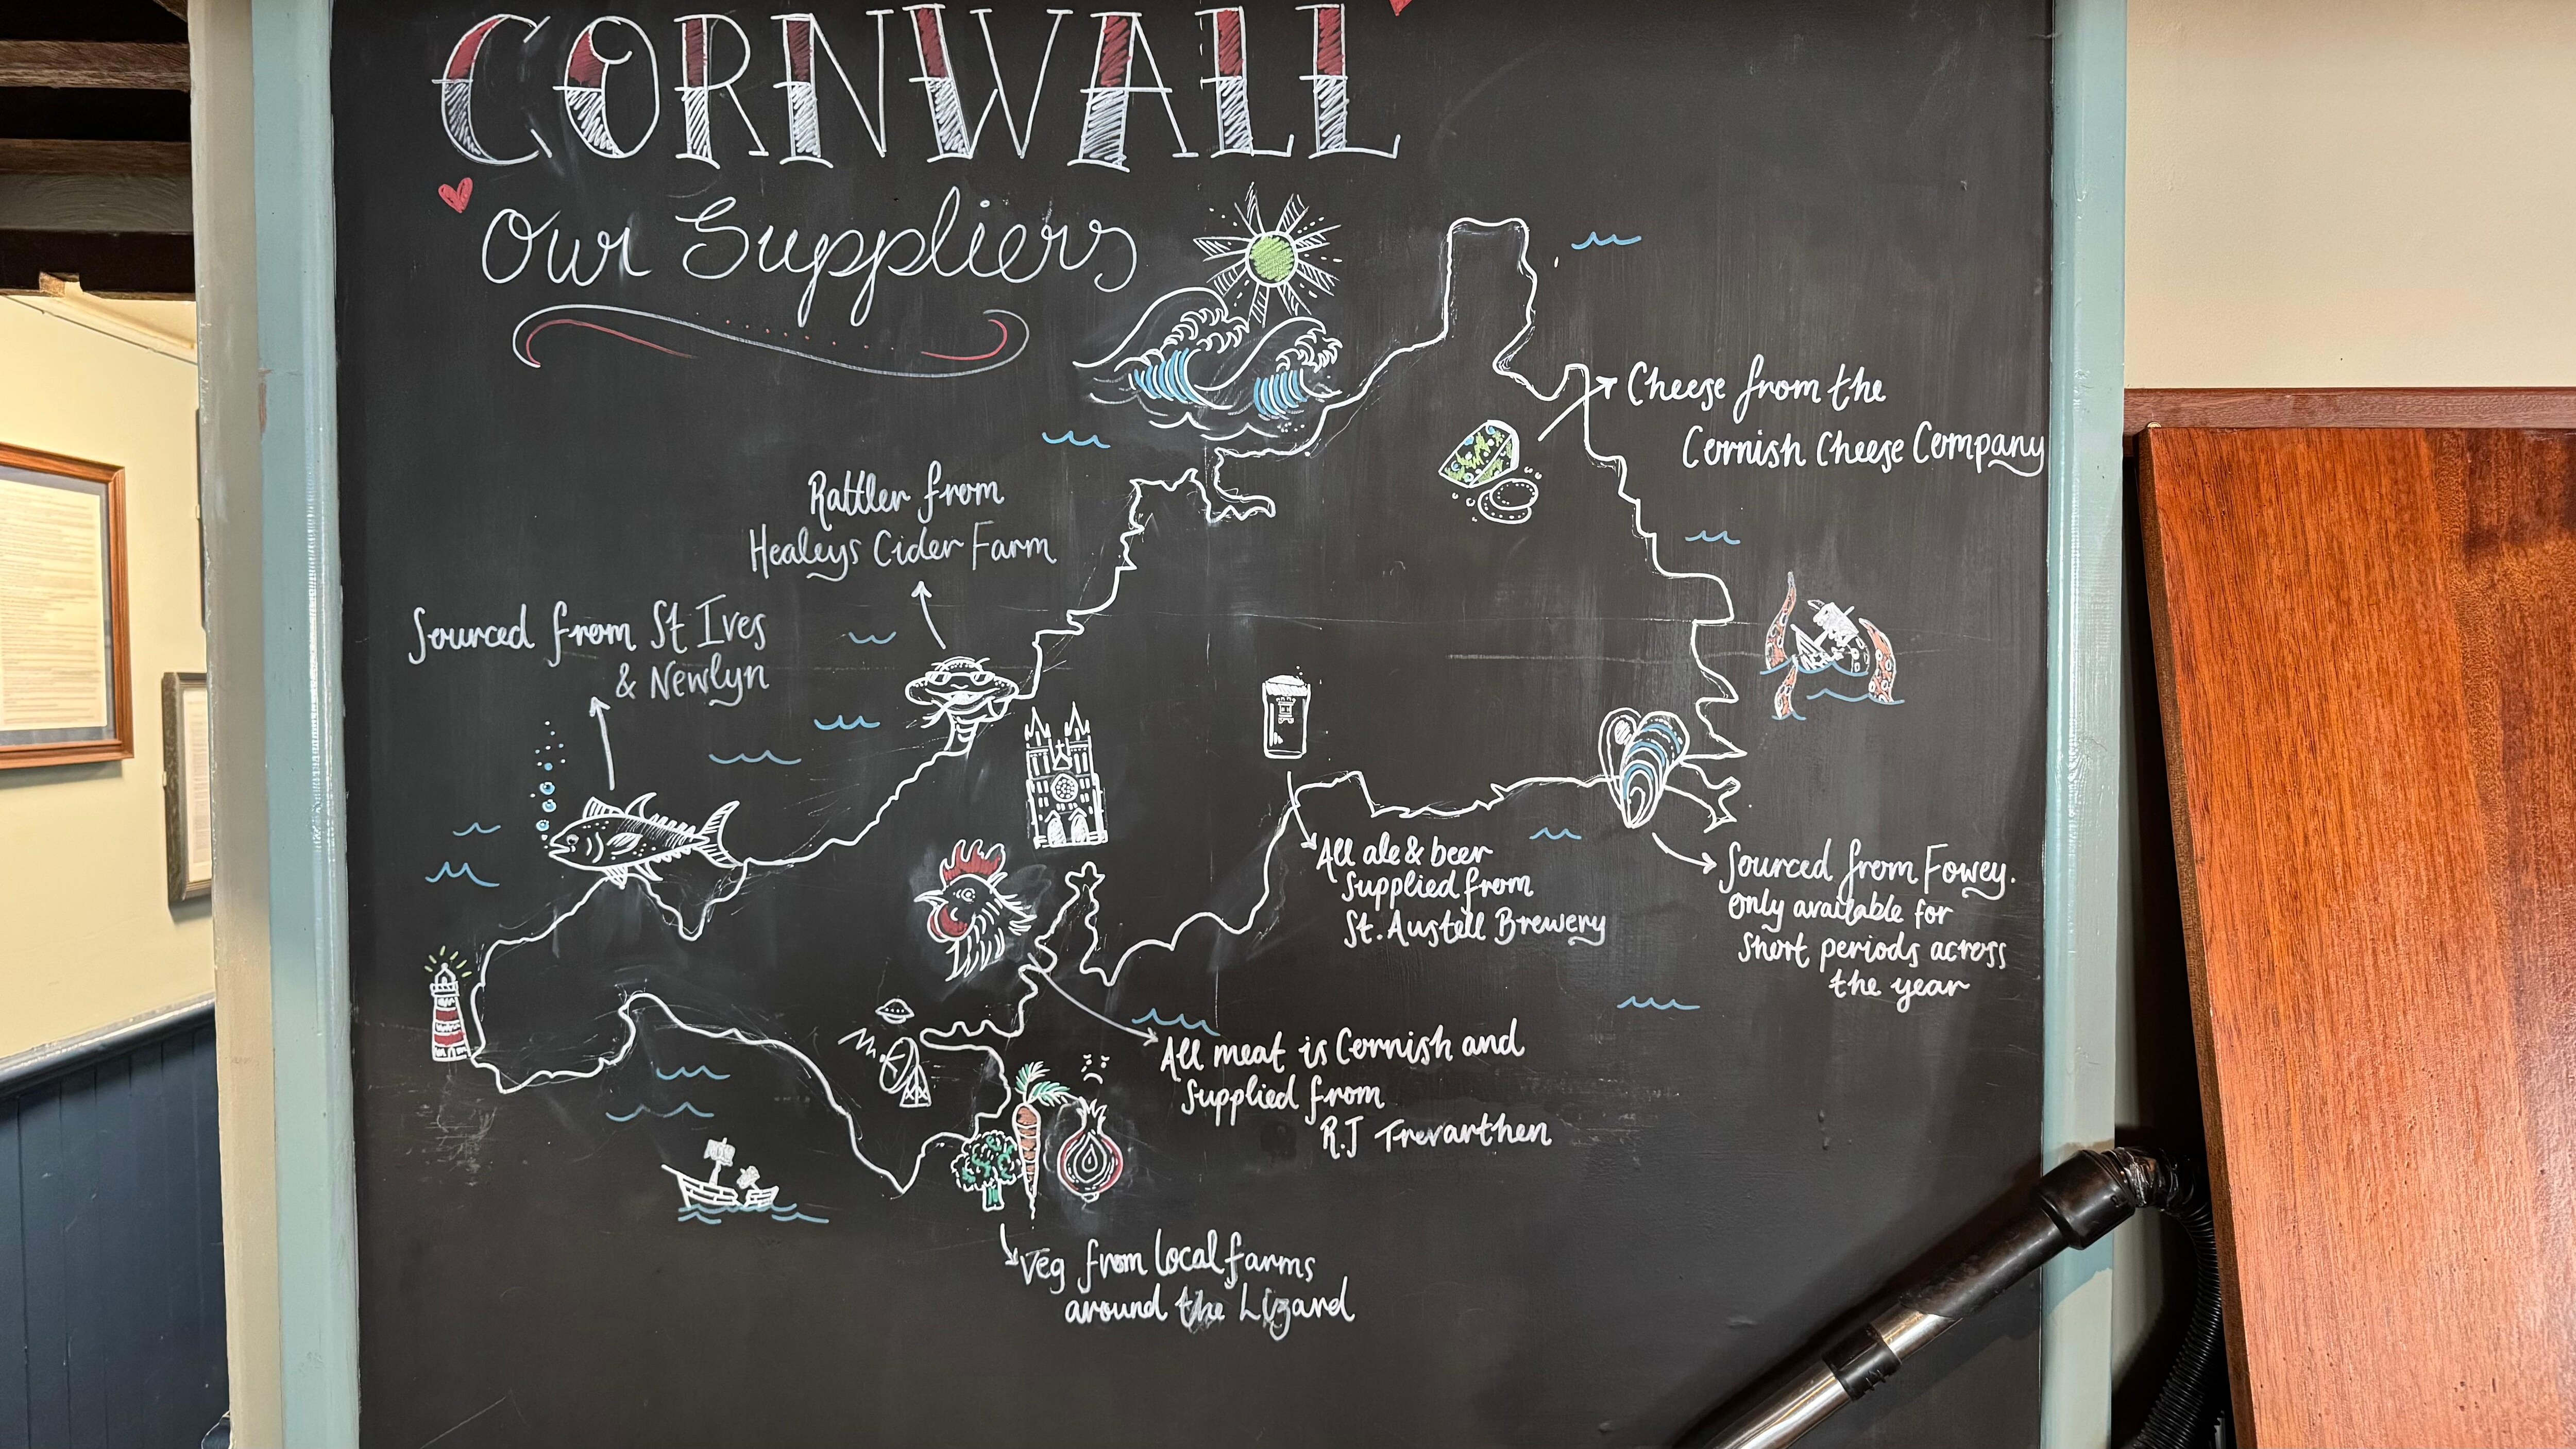 CORNWALL
Our Suppliers
Cheese from the
Cornish Cheese Company
Rattler from
Healeys Cider Farm
Sourced from St Ives
& Newlyn
All ale & beer
supplied from
St. Austell Brewery
Sourced from Fowey.
Only available for
short periods across
the year
All meat is Cornish and
supplied from
R.J Trevarthen
Veg from local farms
around the Lizard